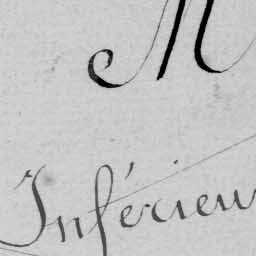 M
Inférieu